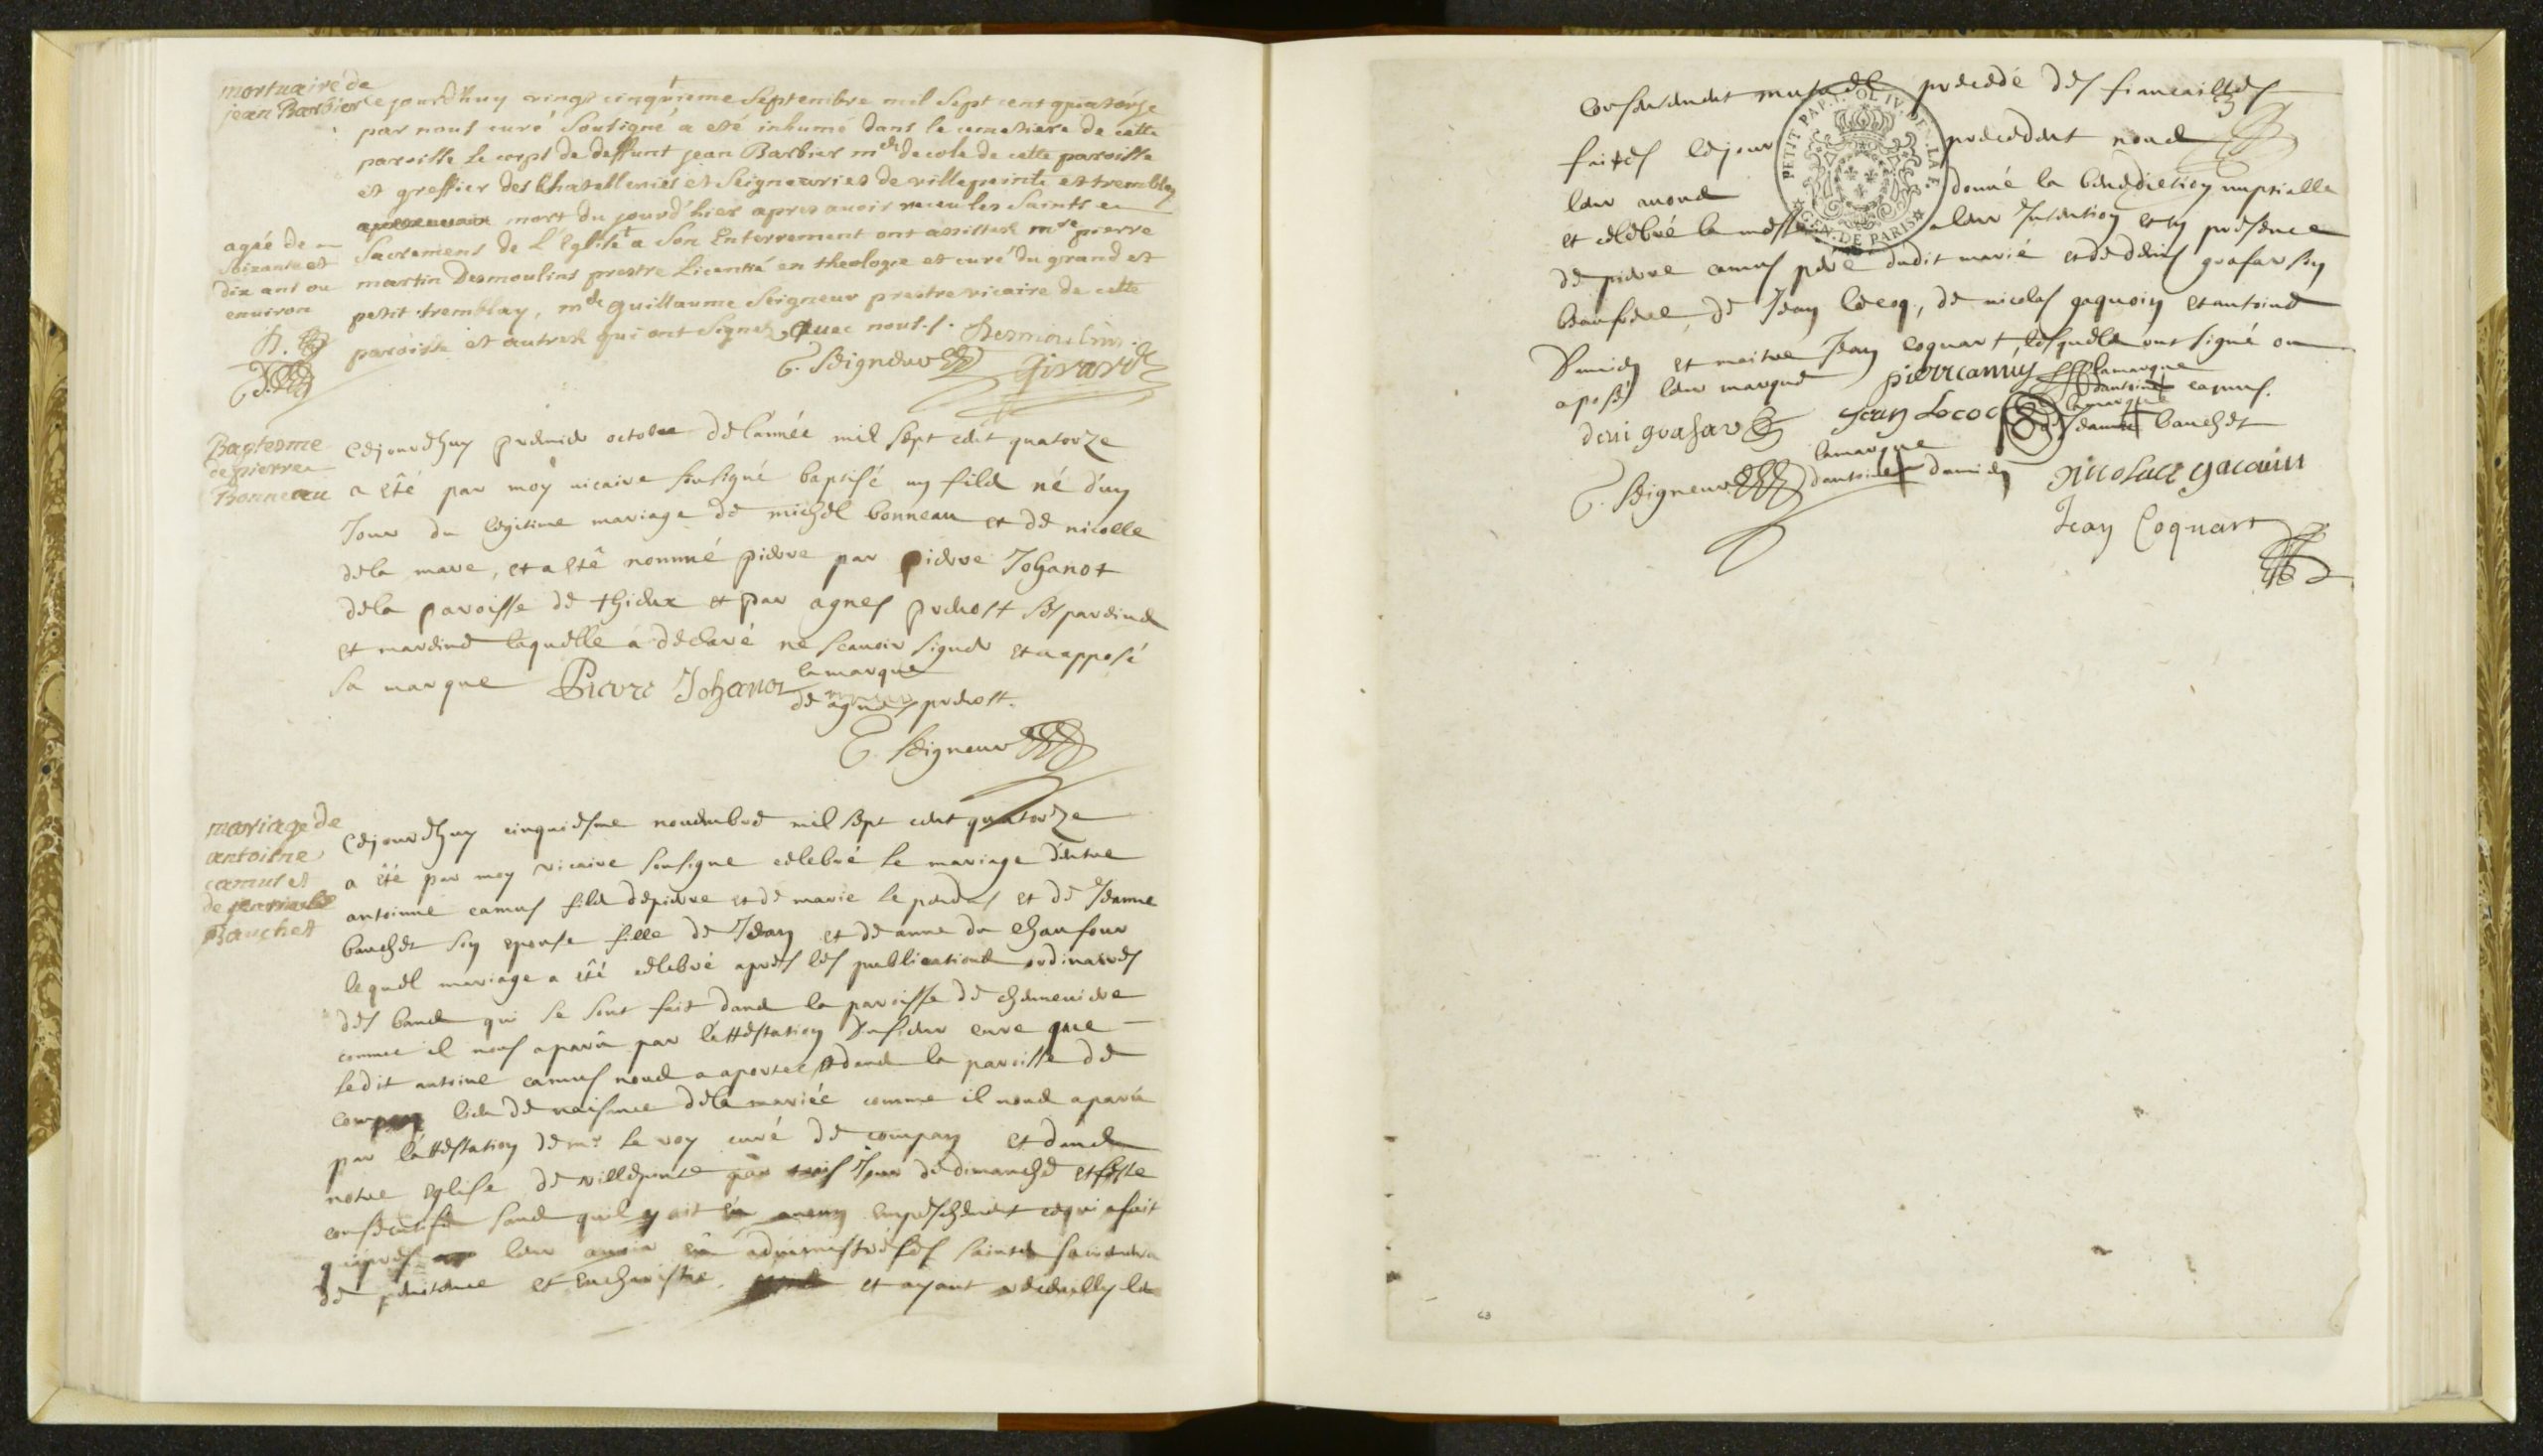 mortuaire de
jean Barbier
Ce jourd'huy vingt cinquieme Septembre mil Sept cent quatorze
par nous curé Sousigné a esté inhumé dans le cemetiere de cette
paroisse le corps de deffunt jean Barbier me decole de cette paroisse
et greffier des Chatellenies et Seigneuries de villepeinte et tremblay
mort du jourd'hier apres avoir receu les Saints
agée de
Soixante et
dix ans ou
environ
Sacremens de L'Eglise a Son Enterrement ont assisté mre pierre
martin Desmoulins prestre Licentié en theologie et curé du grand et
petit tremblay, me guillaume Seigneur prestre vicaire de cette
paroisse et autres qui ont Signez avec nous. Desmoulins.
G. Seigneur Girard
Baptesme
de pierre
Bonneau
Cejourdhuy premier octobre de l'année mil sept cent quatorze
a êté par moy vicaire sousigné baptisé un fils né d'un
Jour du legitime mariage de michel bonneau et de nicolle
dela mare, et a eté nommé pierre par pierre Johanot
dela paroisse de thieux et par agnes prevost ses pareins
et mareine laquelle a declaré ne scavoir signer et a apposé
sa marque Pierre Johanot la marque
de agnes prevost.
G. Seigneur
mariage de
antoine
camus et
de
Bauchet
Cejourdhuy cinquiesme novembre mil sept cent quatorze
a êté par moy vicaire sousigne celebré le mariage d'entre
antoinne camus fils de pierre et de marie le pere et de Jeanne
bauchet son epouse fille de Jean et de anne du chaufour
lequel mariage a eté celebré apres les publications ordinaires
des bans qui se sont fait dans la paroisse de cheneviere
comme il nous aparu par l'attestation du sieur cure que
ledit antoine camus nous a aportee et dans la paroisse de
compan lieu de naisance dela mariée comme il nous aparu
par l'attestation de mr le roy curé de compan et dans
notre eglise de villepinte par trois Jour de dimanche et feste
consecutifs sans quil y ait eu aucun empeschement ce qui a fait
qu'apres leur avoir administré les saints sacremens
de penitence et eucharistie. et ayant recueilly le
consentement mutuel precedé des fiancailles
faites le jour precedent nous
leur avons donné la benediction nuptialle
et celebré la messe a leur Intention et en presence
de pierre camus pere dudit marié et de denis grasar son
beaufrere, de Jean lecoq, de nicolas gaquoin et antoine
Damien et maitre Jean coquart, lesquels ont signé ou
aposé leur marque pierre camus la marque
dantoine camus.
deni grasar Jean Lococ la marque
de Jeanne bauchet
la marque
G. Seigneur dantoine damien Nicolace gacouin
Jean Coquart
PETIT PAP. I. SOL IV. DEN. LA F.
GEN. DE PARIS